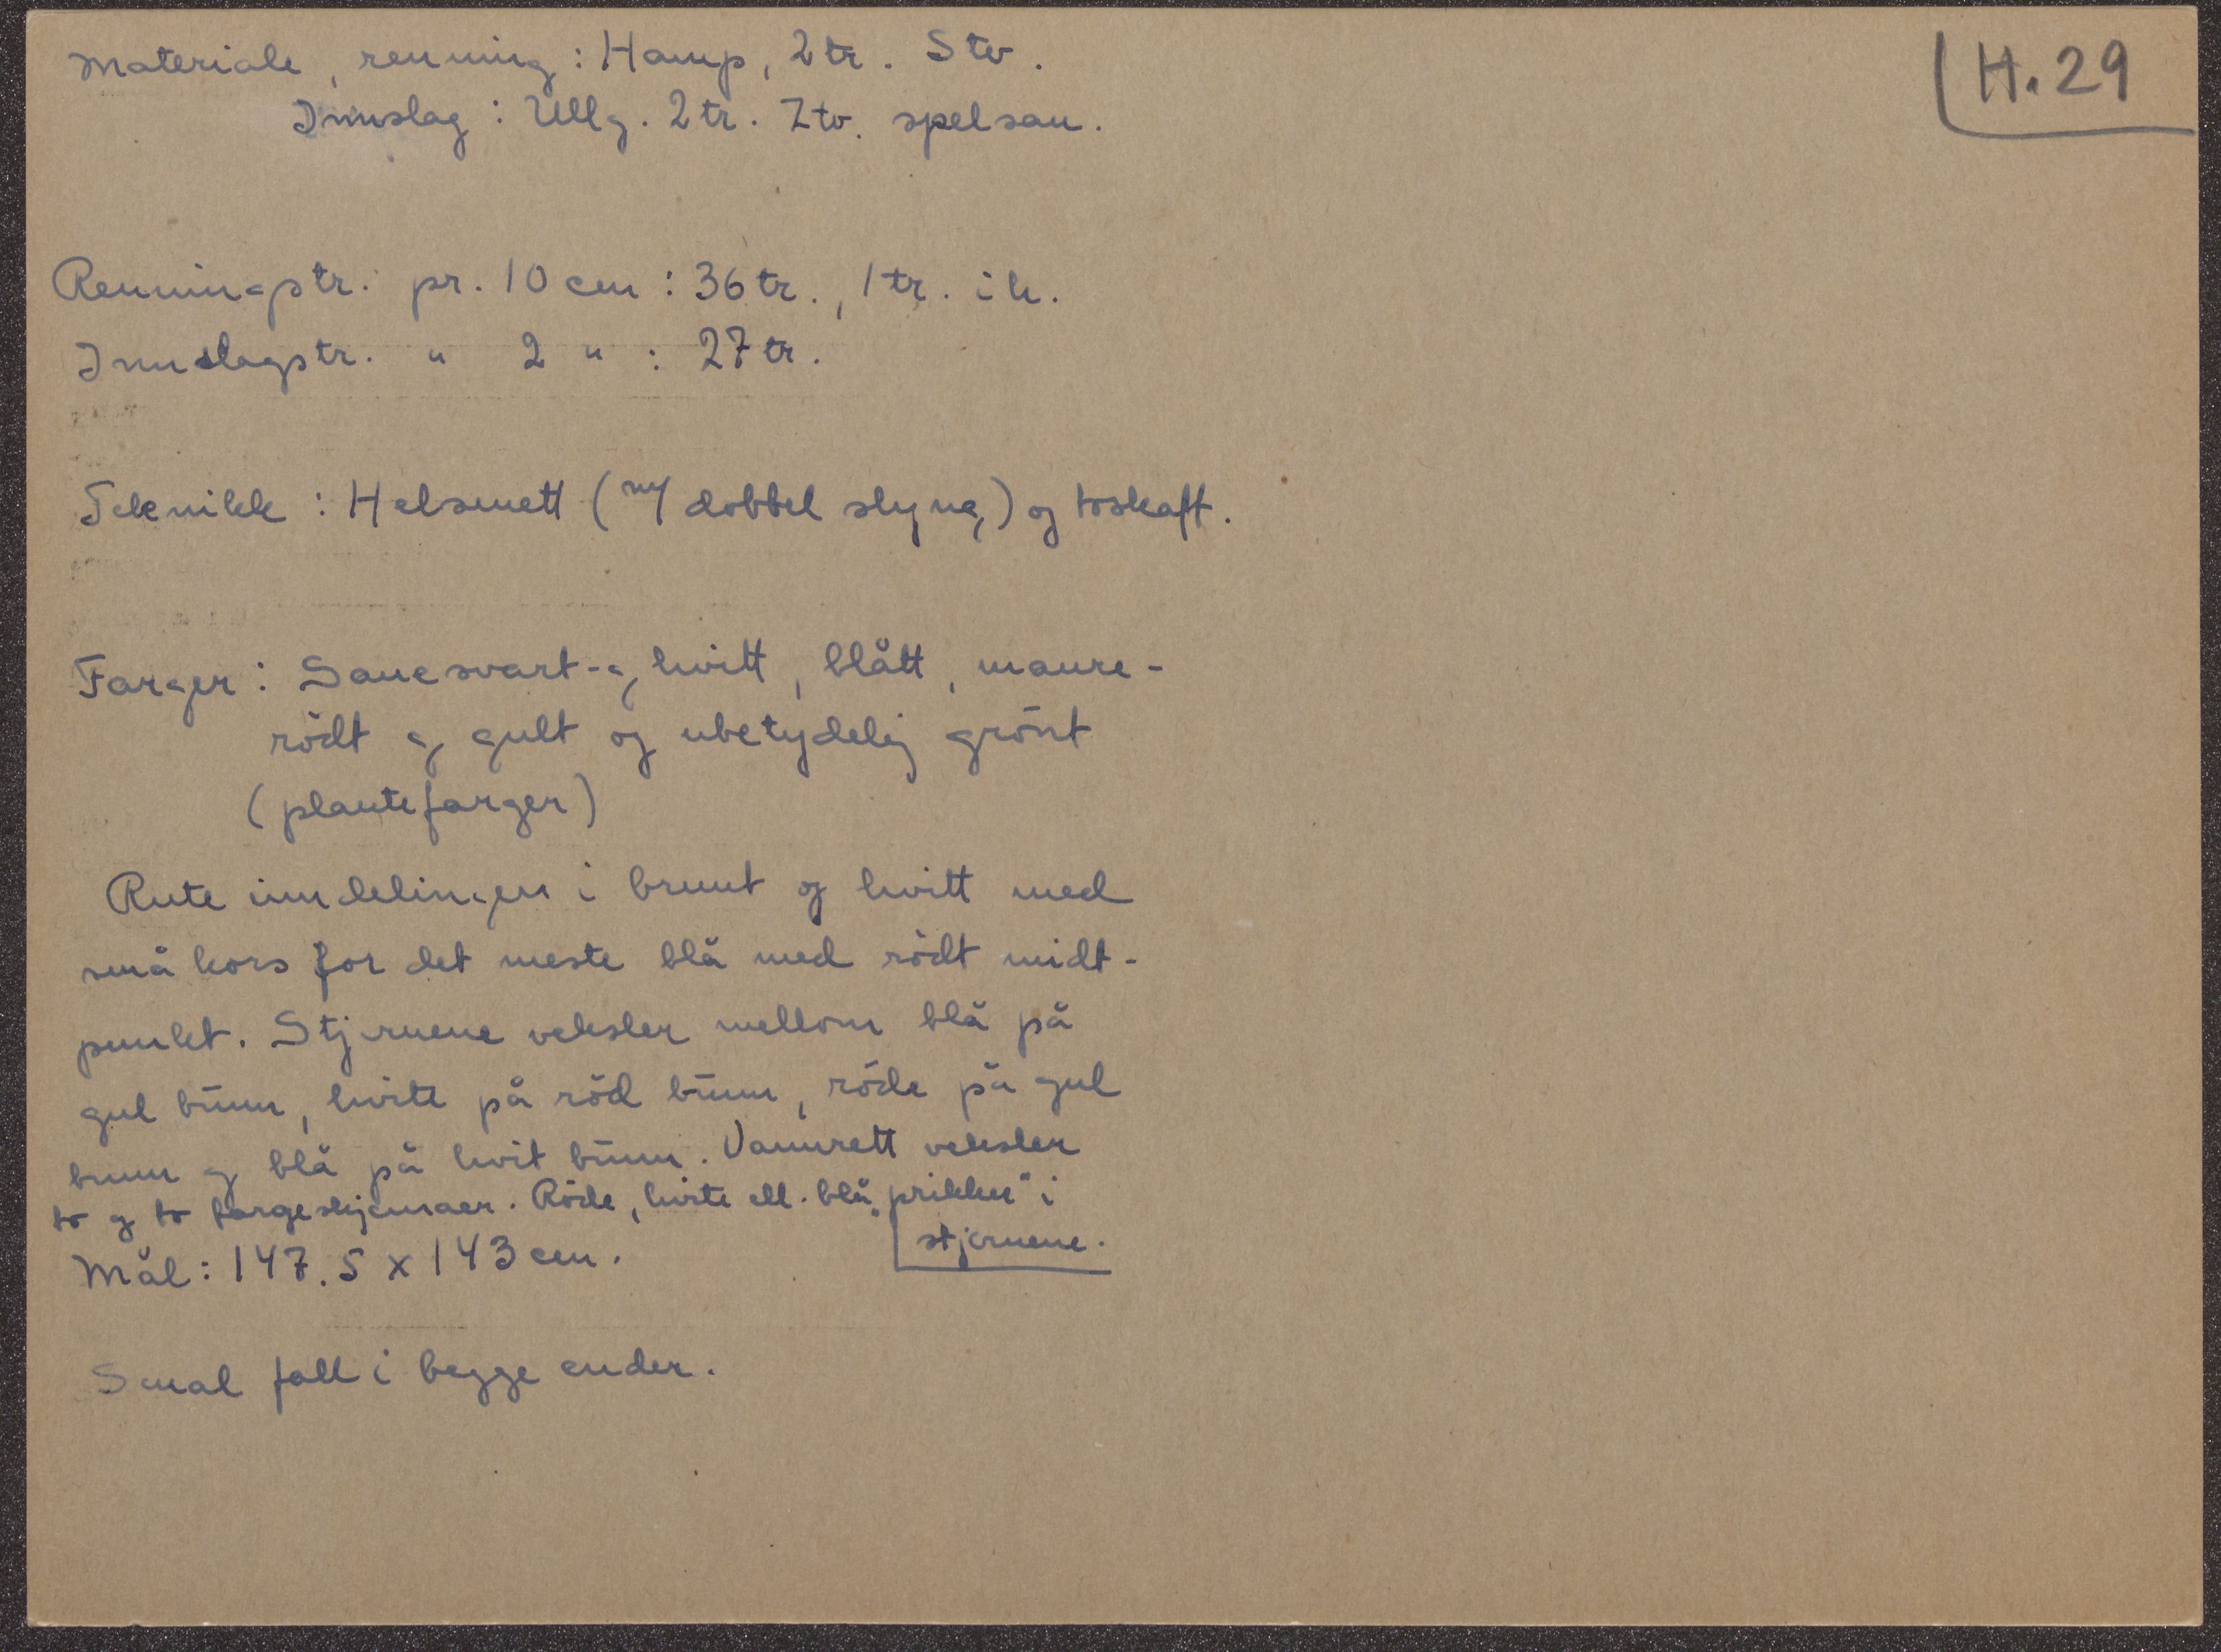 H. 29
Materiale, renning : Hamp, 2 tr. S tv.
Innslag : Ullg. 2 tr. Z tv. spelsau.
Renningstr. pr. 10 cm : 36 tr., 1 tr. i h.
Innslagstr. " 2 " : 27 tr.
Teknikk : Halsmett (m/ dobbel slyng) og toskaft.
Farger : Sauesvart- og hvitt, blått, maure-
rødt og gult og ubetydelig grønt
(plantefarger)
Rute inndelingen i brunt og hvitt med
små kors for det meste blå med rødt midt-
punkt. Stjernene veksler mellom blå på
gul bunn, hvite på rød bunn, røde på gul
bunn og blå på hvit bunn. Vannrett veksler
to og to fargeskjemaer. Røde, hvite ell. blå „prikker" i
stjernene.
Mål : 147.5 x 143 cm.
Smal fall i begge ender.